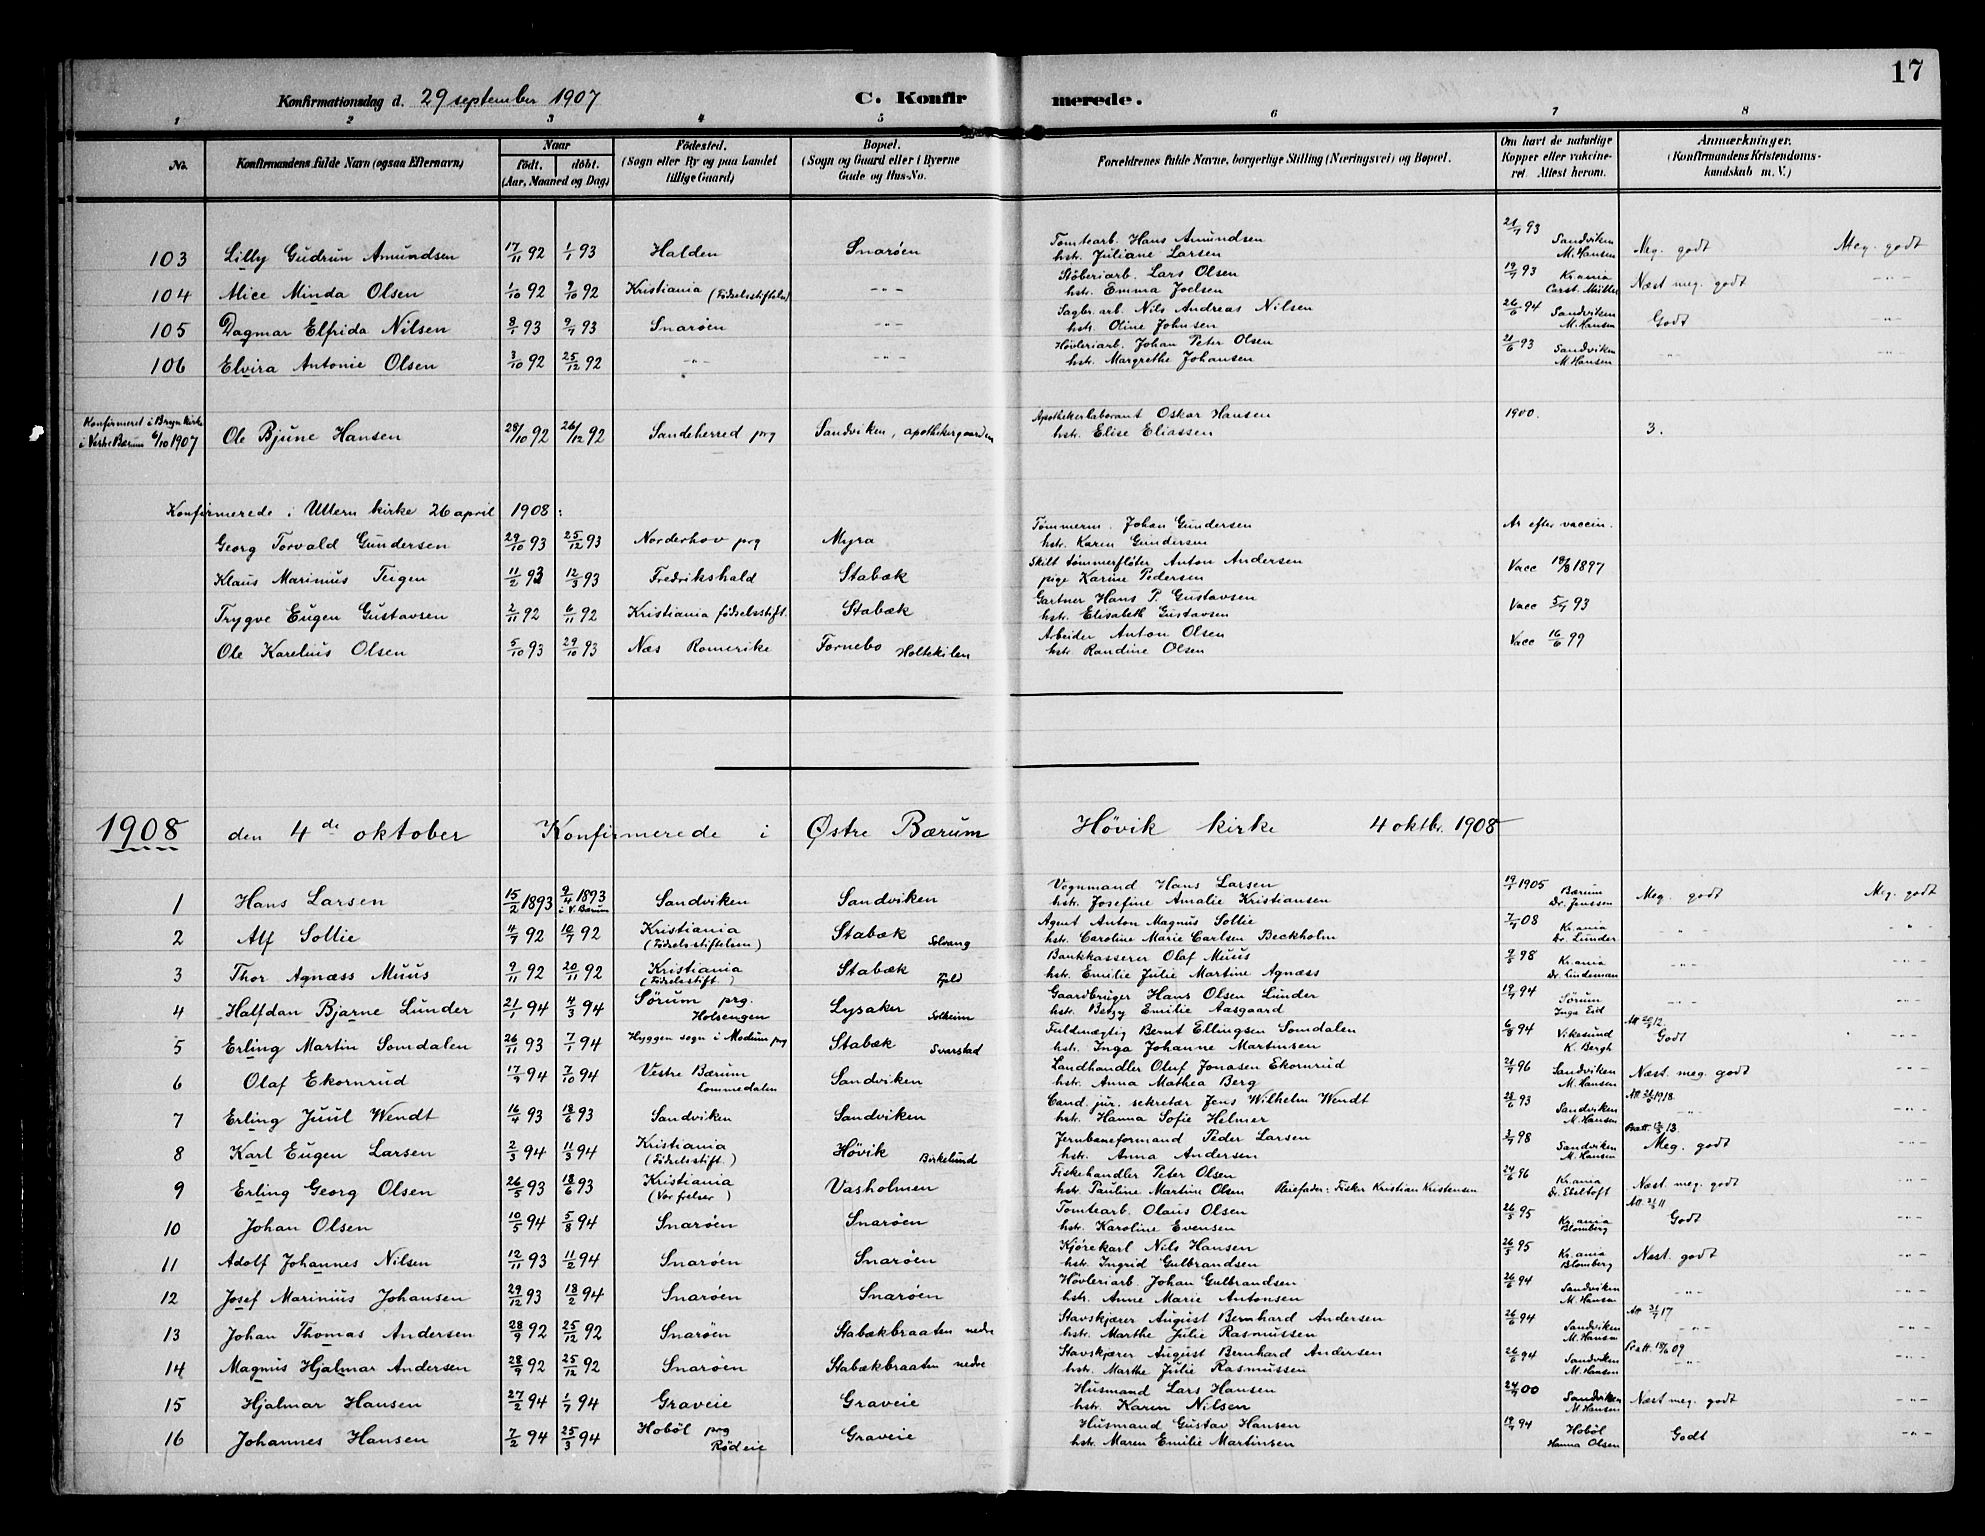 17
Konfirmationsdag d. 29 september 1907 C. Konfirmerede.
1 2 3 4 5 6 7 8
No. Konfirmandens fulde Navn (ogsaa Efternavn) Naar født. døbt. (Aar, Maaned og Dag) Fødested. (Sogn eller By og paa Landet tillige Gaard) Bopæl. (Sogn og Gaard eller i Byerne Gade og Hus-No. Forældrenes fulde Navne, borgerlige Stilling (Næringsvei) og Bopæl. Om havt de naturlige Kopper eller vaksineret. Attest herom. Anmærkninger. (Konfirmandens Kristendomskundskab m. V.)
103 Lilly Gudrun Amundsen 17/11 92 1/1 93 Halden Snarøen Tomtearb. Hans Amundsen hstr. Juliane Larsen 21/7 93 Sandviken M. Hansen Meg. godt Meg. godt
104 Alice Minda Olsen 1/10 92 9/10 92 Kristiania (Fødselsstiftelsen) -"- Støberiarb. Lars Olsen hstr. Emma Joelsen 19/7 93 Kr.ania Carst. Müller Næst meg. godt -"-
105 Dagmar Elfrida Nilsen 8/1 93 9/7 93 Snarøen -"- Sagbr. arb. Nils Andreas Nilsen hstr. Oline Johnsen 26/6 94 Sandviken M. Hansen Godt "
106 Elvira Antonie Olsen 3/10 92 25/12 92 -"- -"- Høvleriarb. Johan Peter Olsen hstr. Margrethe Johansen 21/6 93 Sandviken M. Hansen -"- -"-
Konfirmeret i Bryn kirke i Vestre Bærum 6/10 1907 Ole Bjune Hansen 28/10 92 26/12 92 Sandeherred prg Sandviken, apothekergaarden Apothekerlaborant Oskar Hansen hstr. Elise Eliassen 1900. 3.
Konfirmerede i Ullern kirke 26 april 1908:
Georg Torvald Gundersen 29/10 93 25/12 93 Norderhov prg Myra Tømmerm. Johan Gundersen hstr. Karen Gundersen Ar efter vaccin.
Klaus Marinius Teigen 11/2 93 12/3 93 Fredrikshald Stabæk Skilt tømmerfløter Anton Andersen pige Karine Pedersen Vacc 19/8 1897
Trygve Eugen Gustavsen 2/11 92 6/11 92 Kristiania fødselsstift. Stabæk Gartner Hans P. Gustavsen hstr. Elisabeth Gustavsen Vacc 5/7 93
Ole Karelius Olsen 5/10 93 29/10 93 Næs Romerike Fornebo Holtekilen Arbeider Anton Olsen hstr. Randine Olsen Vacc 16/6 99
1908 den 4de oktober Konfirmerede i Østre Bærum Høvik kirke 4 oktbr. 1908
1 Hans Larsen 15/2 1893 9/4 1893 i V. Bærum Sandviken Sandviken Vognmand Hans Larsen hstr. Josefine Amalie Kristiansen 19/1 1905 Bærum Dr. Jenssen Meg. godt Meg. godt
2 Alf Sollie 4/7 92 10/7 92 Kristiania (Fødselsstiftelsen) Stabæk Solvang Agent Anton Magnus Sollie hstr. Caroline Marie Carlsen Beckholm 7/7 08 Kr.ania Dr. Lunder -"- -"-
3 Thor Agnæss Muus 9/11 92 20/11 92 Kristiania (Fødselsstift.) Stabæk Fjeld Bankkasserer Olaf Muus hstr. Emilie Julie Martine Agnæss 9/6 98 Kr.ania Dr. Lindeman -"- -"-
4 Halfdan Bjarne Lunder 21/1 94 4/3 94 Sørum prg. Holsengen Lysaker Solheim Gaardbruger Hans Olsen Lunder hstr. Betzy Emilie Aasgaard 19/7 94 Sørum Inga Eid -"- -"-
5 Erling Martin Somdalen 26/11 93 7/1 94 Hyggen sogn i Modum prg Stabæk Svarstad Fuldmægtig Bernt Ellingsen Somdalen hstr. Inga Johanne Martinsen 6/8 94 Vikesund K. Bergh Godt -"-
6 Olaf Ekornrud 17/9 94 7/10 94 Vestre Bærum Lommedalen Sandviken Landhandler Oluf Jonasen Ekornrud hstr. Anna Mathea Berg 21/7 96 Sandviken M. Hansen Næst meg. godt -"-
7 Erling Juul Wendt 16/4 93 18/6 93 Sandviken Sandviken Cand. jur. sekretær Jens Wilhelm Wendt hstr. Hanna Sofie Helmer 28/6 93 Sandviken M. Hansen -"- -"-
8 Karl Eugen Larsen 2/3 94 11/3 94 Kristiania (Fødselsstift.) Høvik Birkelund Jernbaneformand Peder Larsen hstr. Anna Andersen 2/7 98 Sandviken M. Hansen Meg. godt -"-
9 Erling Georg Olsen 26/5 93 18/6 93 Kristiania (Vor felser) Vasholmen Fiskehandler Peter Olsen hstr. Pauline Martine Olsen Pleiefader: Fisker Kristian Kristensen 24/6 96 Kr.ania Dr. Ebeltoft Næst meg. godt -"-
10 Johan Olsen 10/5 94 5/8 94 Snarøen Snarøen Tomtearb. Olaus Olsen hstr. Karoline Evensen 26/5 95 Kr.ania Blomberg Godt -"-
11 Adolf Johannes Nilsen 12/11 93 11/2 94 Snarøen Snarøen Kjørekarl Nils Hansen hstr. Ingrid Gulbrandsen 26/5 95 Kr.ania Blomberg Næst. godt -"-
12 Josef Marinius Johansen 29/12 93 18/2 94 Snarøen Snarøen Høvleriarb. Johan Gulbrandsen hstr. Anne Marie Antonsen 26/6 94 Sandviken M. Hansen -"- -"-
13 Johan Thomas Andersen 28/9 92 25/12 92 Snarøen Stabækbraaten nedre Stavskjærer August Bernhard Andersen hstr. Marthe Julie Rasmussen 26/6 94 Sandviken M. Hansen -"- -"-
14 Magnus Hjalmar Andersen 28/9 92 25/12 92 Snarøen Stabækbraaten nedre Stavskjærer August Bernhard Andersen hstr. Marthe Julie Rasmussen 26/6 94 Sandviken M. Hansen -"- -"-
15 Hjalmar Hansen 27/2 94 1/7 94 Graveie Graveie Husmand Lars Hansen hstr. Karen Nilsen 24/7 00 Sandviken M. Hansen Næst meg. godt -"-
16 Johannes Hansen 7/2 94 25/3 94 Hobøl prg Rødeie Graveie Husmand Gustav Hansen hstr. Maren Emilie Martinsen 18/7 94 Hobøl Hanna Olsen Godt -"-